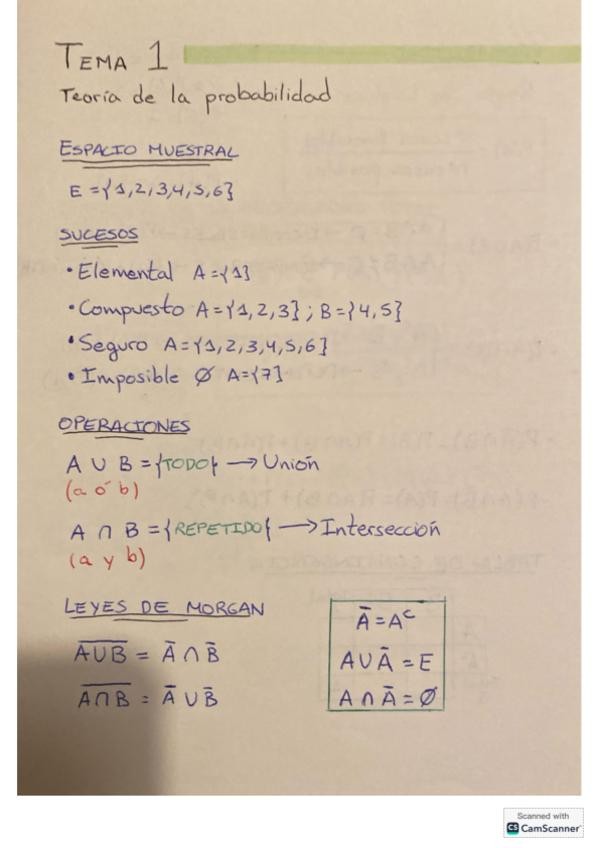 TEMA 1
Teoría de la probabilidad
ESPACIO MUESTRAL
E = {1,2,3,4,5,6}
SUCESOS
• Elemental A={1}
• Compuesto A={1,2,3} ; B={4,5}
• Seguro A={1,2,3,4,5,6}
• Imposible Ø A={7}
OPERACIONES
A ∪ B = {TODO} → Unión
(a ó b)
A ∩ B = {REPETIDO} → Intersección
(a y b)
LEYES DE MORGAN
A̅∪̅B̅ = Ā ∩ B̄
A̅∩̅B̅ = Ā ∪ B̄
Ā = Aᶜ
A ∪ Ā = E
A ∩ Ā = Ø
Scanned with
CS CamScanner